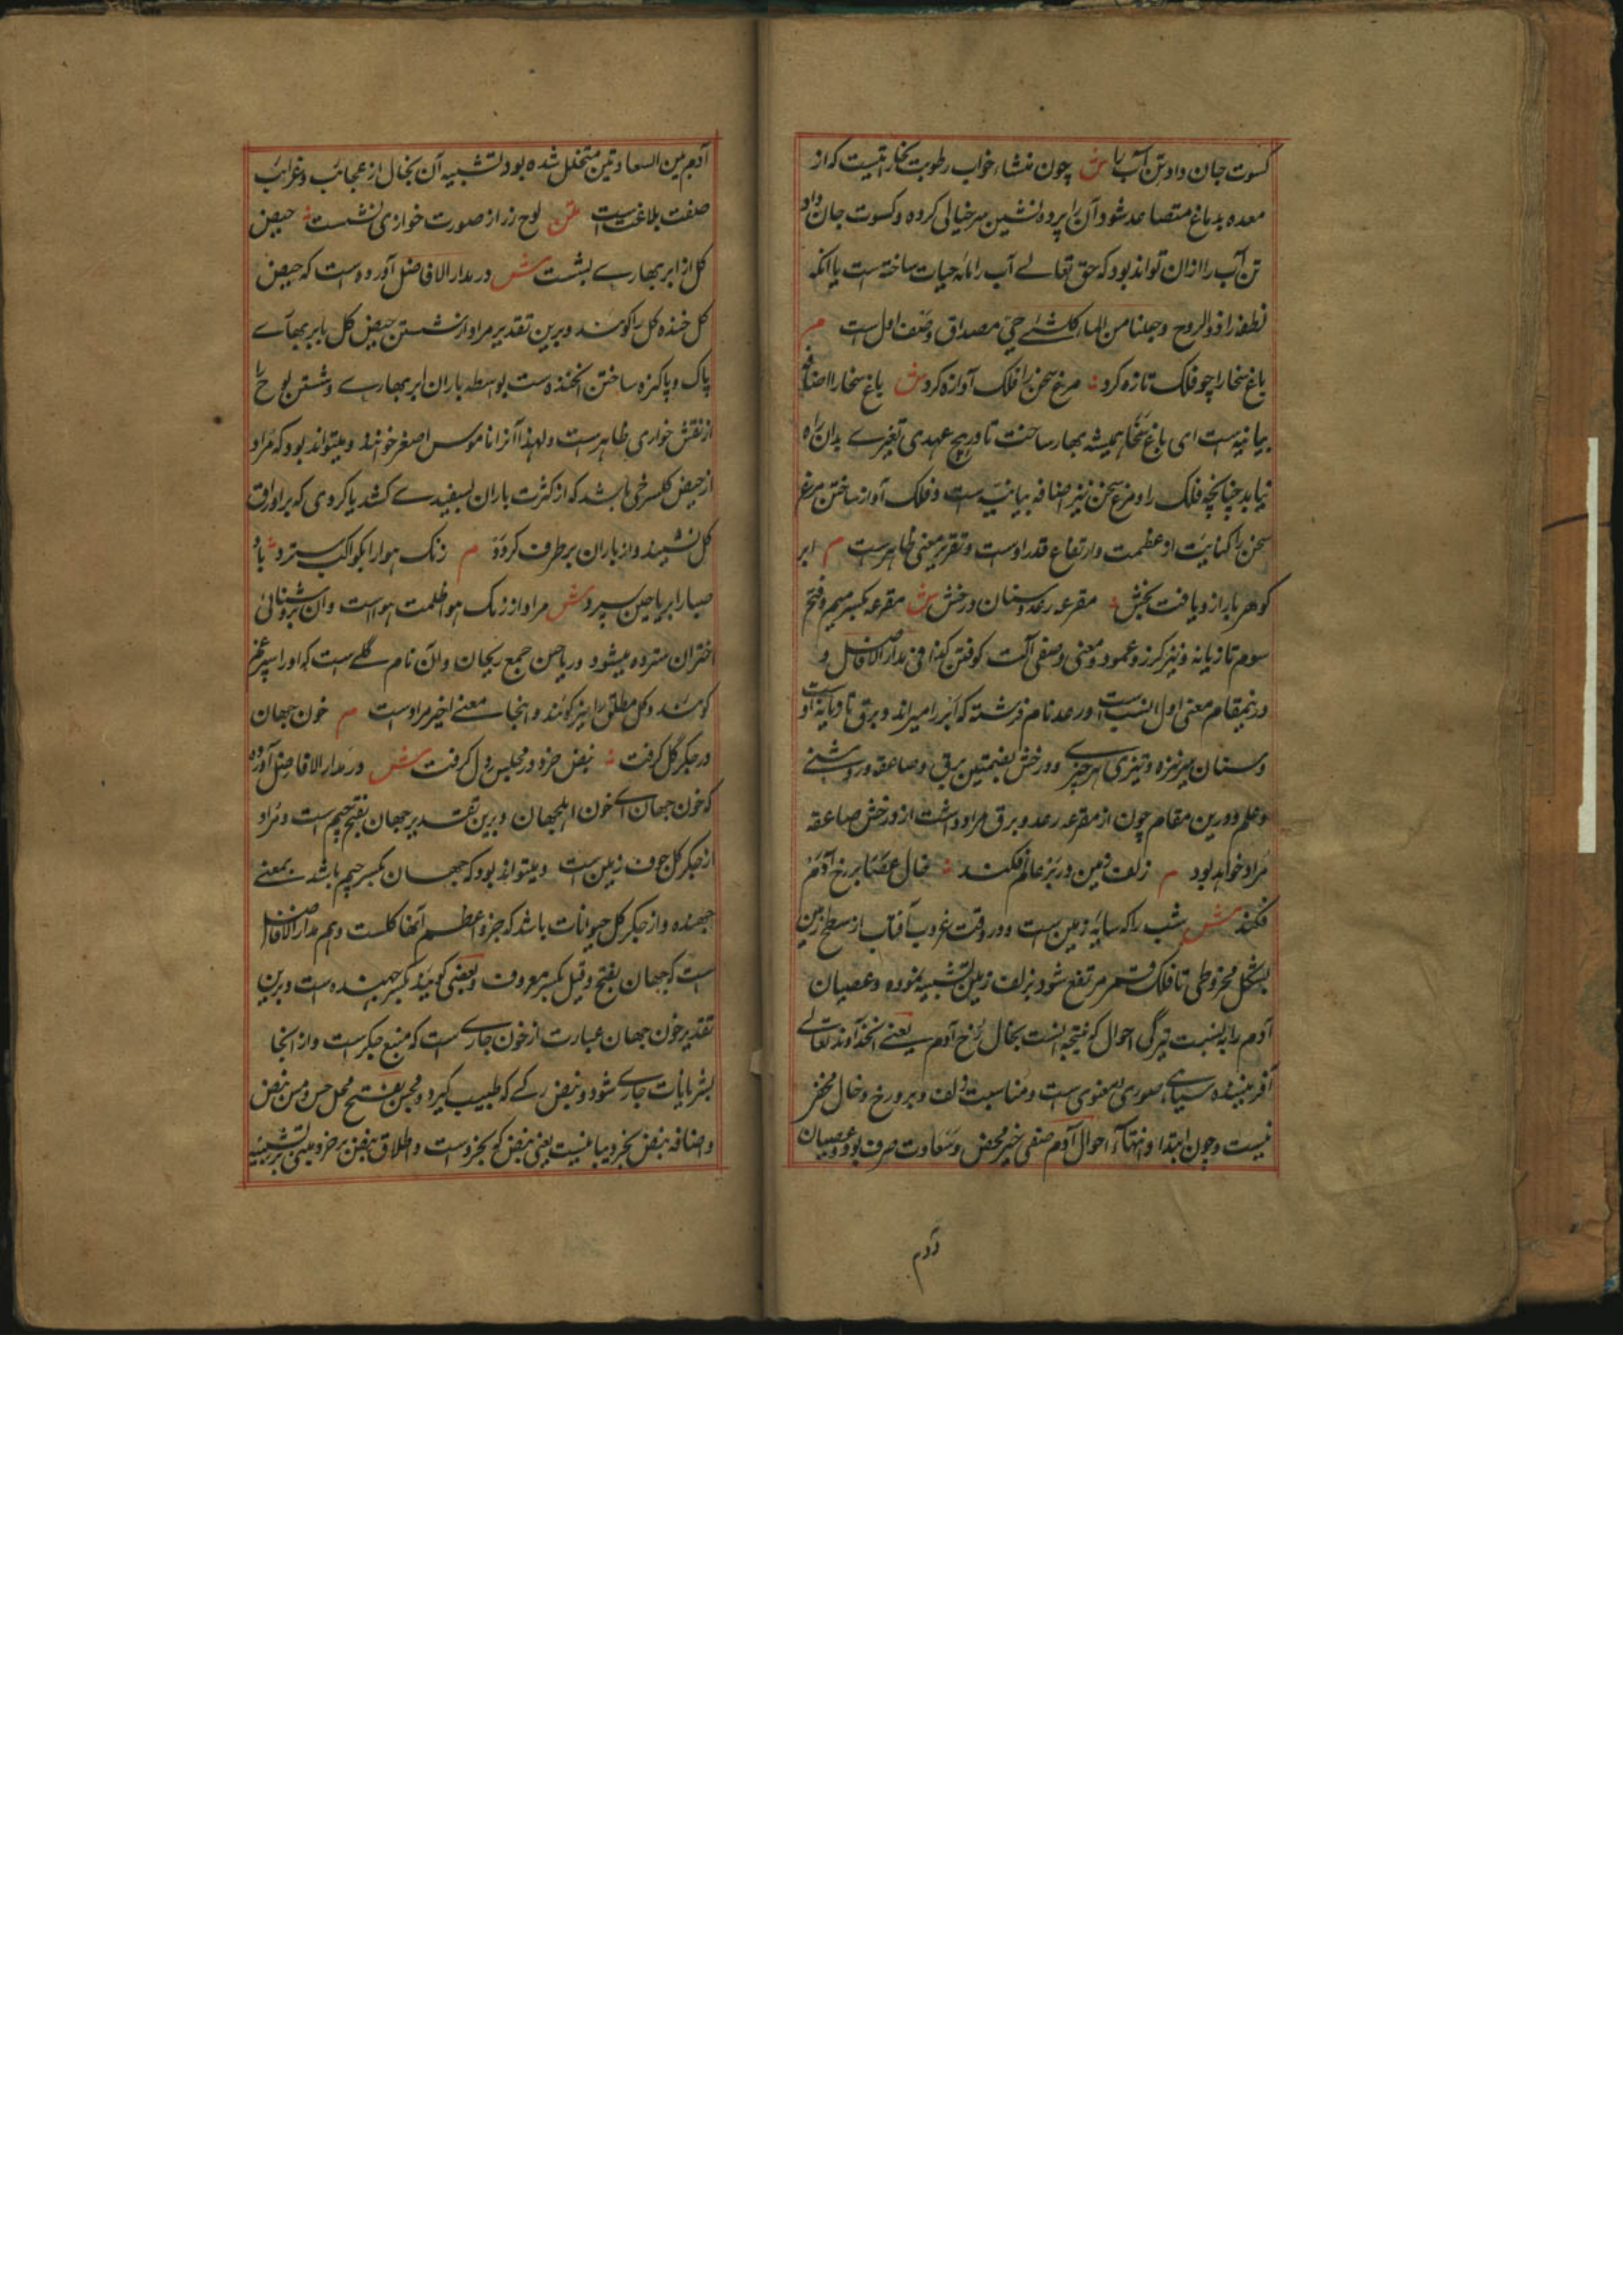 کسوت جان داد تن آب را ش چون منشاء خواب رطوبت بخاراتیست که از
معده بدماغ متصاعد شود آن را پرده نشین سر خیالی کرده و کسوت جان داد
تن آب را ازان تواند بود که حق تعالے آب را مائه حیات ساخته ست یا آنکه
نطفه را ذوالروح وجعلنا من الماء کل شئے حی مصداق وصف اول ست م
باغ سخا را چو فلک تازه کرد مرغ سخن را فلک آوازه کرد ش باغ سخا را اضافه
بیانیه ست ای باغ سخا همیشه بهار ساخت تا در هیچ عهدی تغیرے بدان راه
نیابد چنانچه فلک را و مرغ سخن نیز اضافه بیانیه ست و فلک آوازه ساختن مرغ
سخن را کنایت از عظمت و ارتفاع قدر اوست و تقریر معنی ظاهرست م ابر
گوهر بار از دریافت بخش مقرعه رعد و سنان درخش ش مقرعه بکسر میم و فتح
سوم تازیانه و نیز گرز و عمود و معنی وصفی آلت کوفتن کذا فی مدار الافاضل و
درینمقام معنی اول انسب ست و رعد نام فرشته که ابر را میراند و برق تازیانه اوست
وسنان سر نیزه و تیزی هر چیزے و درخش بضمتین برق و صاعقه و روشنے
و علم و درین مقام چون از مقرعه رعد و برق مراد داشت از درخش صاعقه
مراد خواهد بود م زلف زمین در بر عالم فکند خال عصا بر رخ آدم
فکند ش شب را که سایه زمین ست و در وقت غروب آفتاب از سطح زمین
بشکل مخروطی تا فلک قمر مرتفع شود بزلف زمین تشبیه نموده و عصیان
آدم را به نسبت تیرگی احوال که نتیجه آنست بخال رخ آدم یعنے آنخداوند تعالے
آفریننده سیاهے صوری و معنوی ست و مناسبت زلف و بر و رخ و خال مخفی
نیست و چون ابتدا و انتهاء احوال آدم صفی خیر محض و سعادت صرف بود و عصیان
آدم
آدم بین السعادتین متخلل شده بود تشبیه آن بخال از عجائب و غرائب
صفت بلاغت ست متن لوح زر از صورت خواری نشست حیض
گل از ابر بهارے بشست ش در مدار الافاضل آورده است که حیض
گل خنده گل را گویند و برین تقدیر مراد از شستن حیض گل بابر بهارے
پاک و پاکیزه ساختن آنخنده ست بواسطه باران ابر بهارے و شستن لوح را
از نقش خواری ظاهرست و لهذا آنرا ناموس اصغر خوانند و میتواند بود که مراد
از حیض گل سرخی باشد که از کثرت باران بسفیدے کشد یا گردی که بر اوراق
گل نشیند و از باران برطرف گردد م زنگ هوا را بکواکب سترد باد
صبا را بریاحین سپرد ش مراد از زنگ هوا ظلمت هواست و آن بروشنائی
اختران سترده میشود و ریاحین جمع ریحان و آن نام گلے ست که او را سپرغم
گویند و گل مطلق را نیز گویند و اینجا معنے اخیر مراد ست م خون جهان
در جگر گل گرفت نبض خرد در مجلس دل گرفت ش در مدار الافاضل آورده
که خون جهان اے خون اهل جهان و برین تقدیر جهان بفتح جیم ست و مراد
از جگر گل جوف زمین ست و میتواند بود که جهان بکسر جیم باشد بمعنے
جهنده و از جگر گل حیوانات باشد که جزو اعظم آنها گلست و هم در مدار الافاضل
ست که جهان بفتح و قیل بکسر معروف و بعضی گویند بکسر جهنده ست و برین
تقدیر خون جهان عبارت از خون جارے ست که منبع جگر ست و از آنجا
بشریانات جارے شود و نبض رگے که طبیب گیرد و مجس بفتح محل حس و مس نبض
و اضافه نبض بخرد بیانیست یعنی نبض که خرد ست و اطلاق نبض بر خرد مبنی بر تشبیه